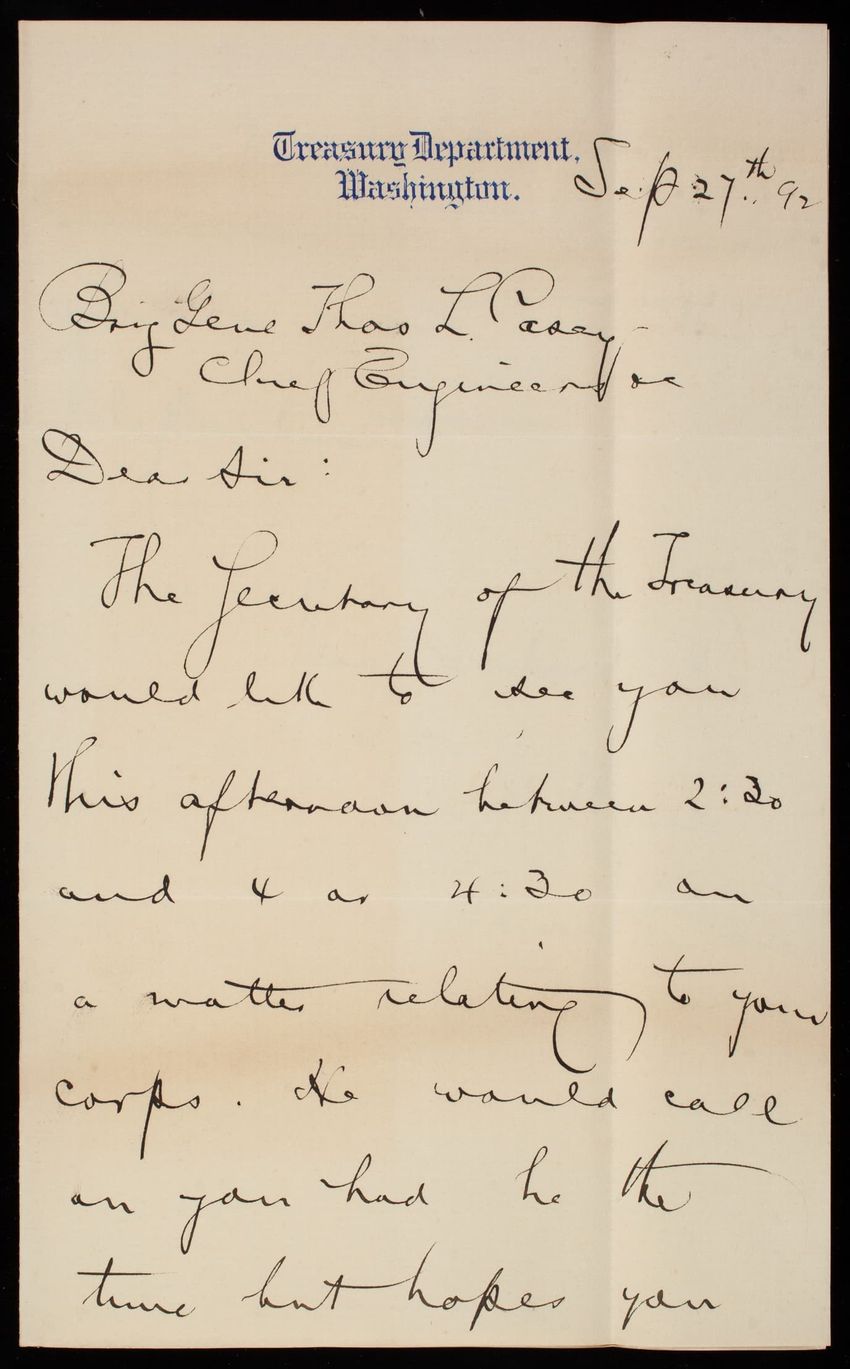 Treasury Department,
Washington.
Sep 27th 92
Brig Genl Thos L. Casey
Chief Engineers &c
Dear Sir:
The Secretary of the Treasury
would like to see you
this afternoon between 2:30
and 4 or 4:30 on
a matter relating to your
corps. He would call
on you had he the
time but hopes you